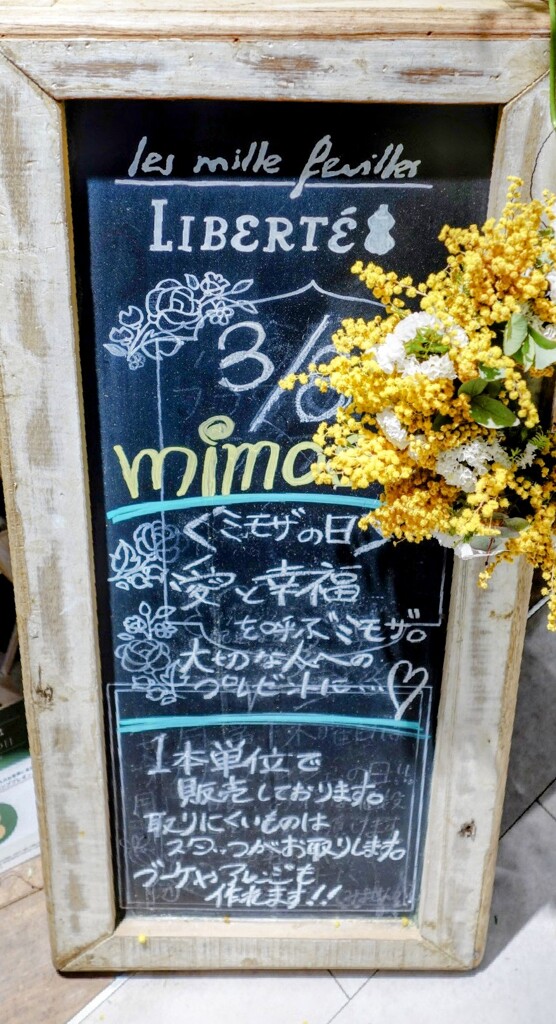 les mille feuilles
LIBERTÉ
3/8
mimo
<ミモザの日>
愛と幸福
を呼ぶミモザ。
大切な人への
プレゼントに…
1本単位で
販売しております。
取りにくいものは
スタッフがお取りします。
ブーケやアレンジも
作れます!!